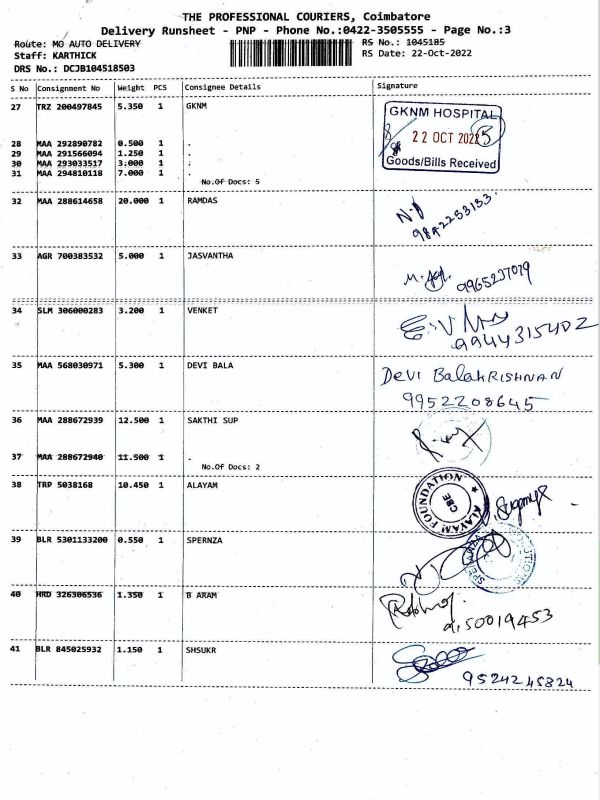 THE PROFESSIONAL COURIERS, Coimbatore
Delivery Runsheet - PNP - Phone No.:0422-3505555 - Page No.:3
Route: MO AUTO DELIVERY
RS No.: 1045185
Staff: KARTHICK
RS Date: 22-Oct-2022
DRS No.: DCJB104518503
S No Consignment No Weight PCS Consignee Details Signature
27 TRZ 200497845 5.350 1 GKNM
GKNM HOSPITAL
22 OCT 2022
Goods/Bills Received
28 MAA 292890782 0.500 1 .
29 MAA 291566094 1.250 1 .
30 MAA 293033517 3.000 1 .
31 MAA 294810118 7.000 1 .
No.Of Docs: 5
32 MAA 288614658 20.000 1 RAMDAS
33 AGR 700383532 5.000 1 JASVANTHA
9965237079
34 SLM 306000283 3.200 1 VENKET
9944315402
35 MAA 568030971 5.300 1 DEVI BALA
DEVI BALAKRISHNAN
9952208645
36 MAA 288672939 12.500 1 SAKTHI SUP
37 MAA 288672940 11.500 1 .
No.Of Docs: 2
38 TRP 5038168 10.450 1 ALAYAM
ALAYAM FOUNDATION
CBE
39 BLR 5301133200 0.550 1 SPERNZA
40 HRD 326306536 1.350 1 B ARAM
41 BLR 845025932 1.150 1 SHSUKR
9524245824